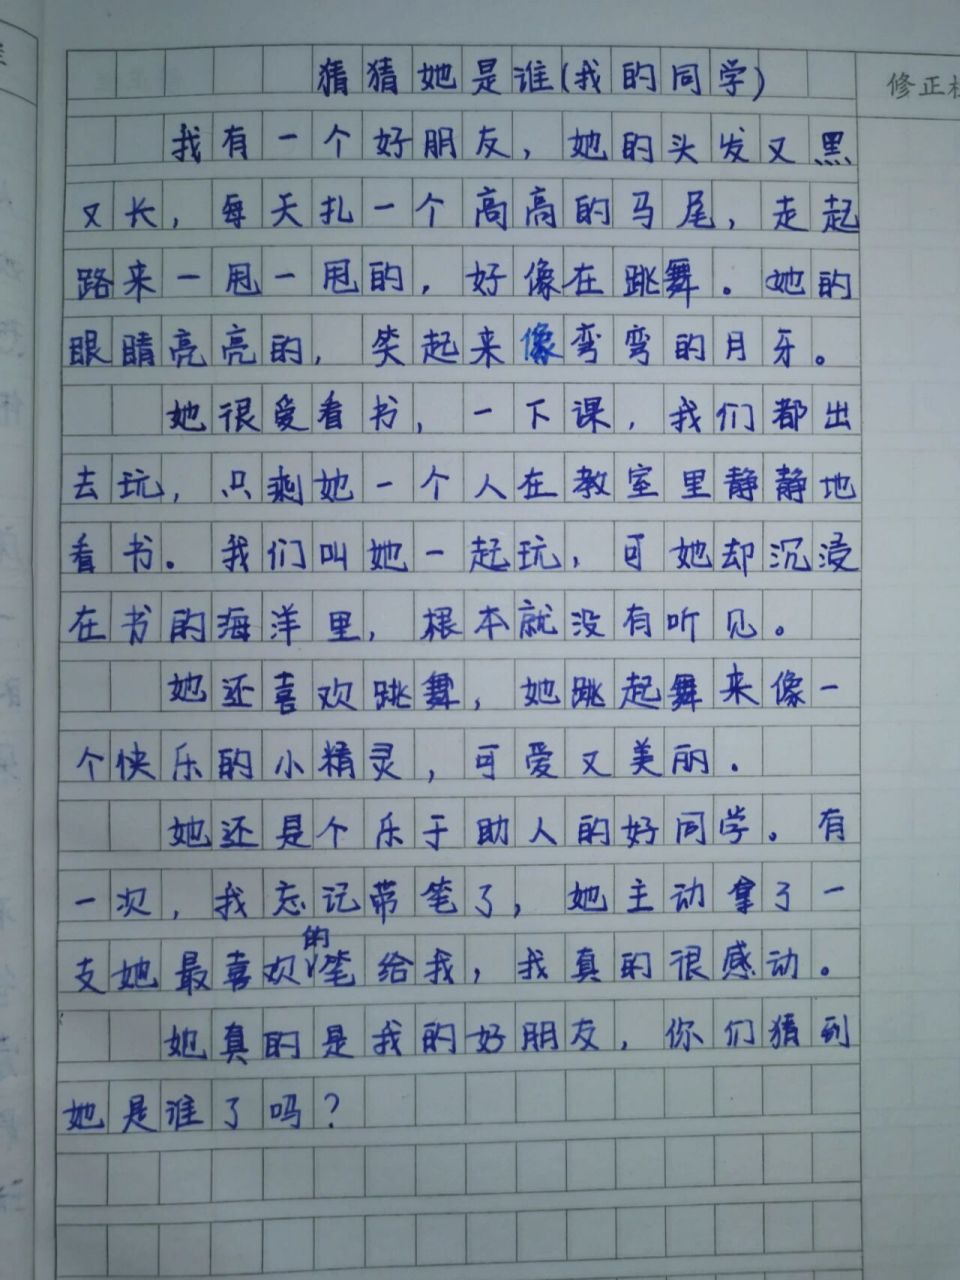 猜猜她是谁(我的同学)
修正
我有一个好朋友，她的头发又黑
又长，每天扎一个高高的马尾，走起
路来一甩一甩的，好像在跳舞。她的
眼睛亮亮的，笑起来像弯弯的月牙。
她很爱看书，一下课，我们都出
去玩，只剩她一个人在教室里静静地
看书。我们叫她一起玩，可她却沉浸
在书的海洋里，根本就没有听见。
她还喜欢跳舞，她跳起舞来像一
个快乐的小精灵，可爱又美丽.
她还是个乐于助人的好同学。有
一次，我忘记带笔了，她主动拿了一
支她最喜欢的笔给我，我真的很感动。
她真的是我的好朋友，你们猜到
她是谁了吗？